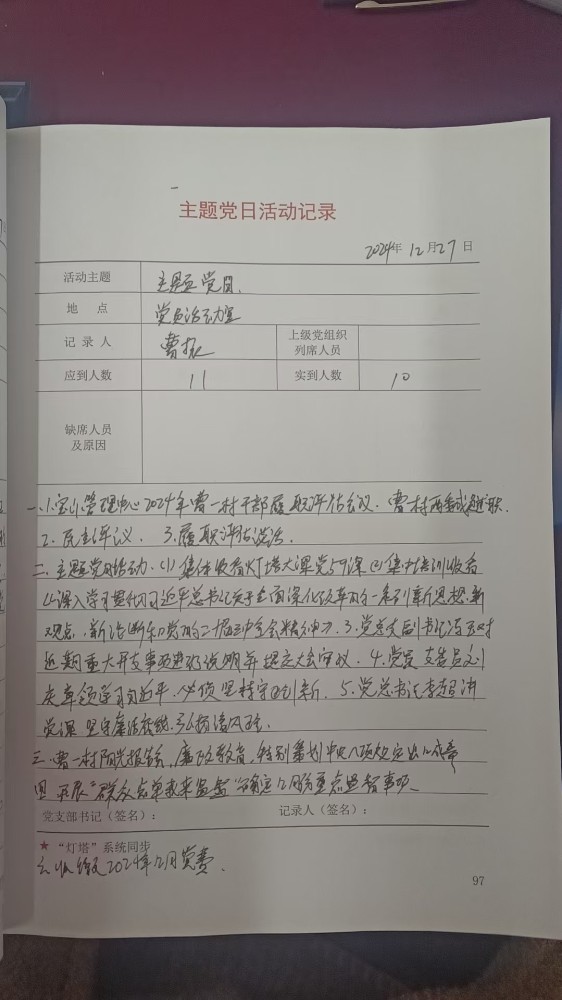 主题党日活动记录
2024年12月27日
活动主题 主题党日.
地 点 党员活动室
记 录 人 曹 上级党组织列席人员
应到人数 11 实到人数 10
缺席人员及原因
一.1. 管理中心2024年曹一村干部履职评估会议. 曹一村两委述职.
2. 民主评议. 3. 履职评估
二. 主题党日活动. (1) 集体收看灯塔大课堂59课 (2) 集中培训收看
《深入学习贯彻习近平总书记关于全面深化改革的一系列新思想.新
观点.新论断和党的二十届三中全会精神》. 3. 党总支副书记 对
近期重大开支事项进行说明并提交大会审议. 4. 党员
领学习近平. 必须坚持守正创新. 5. 党总书记 讲
党课 坚守廉洁底线.
三. 曹一村阳光报告会, 廉政教育, 特别策划中央八项规定出
开展“群众点单我来监督”确定12月份重点监督事项.
党支部书记（签名）： 记录人（签名）：
★ “灯塔”系统同步
收缴2024年12月党费.
97